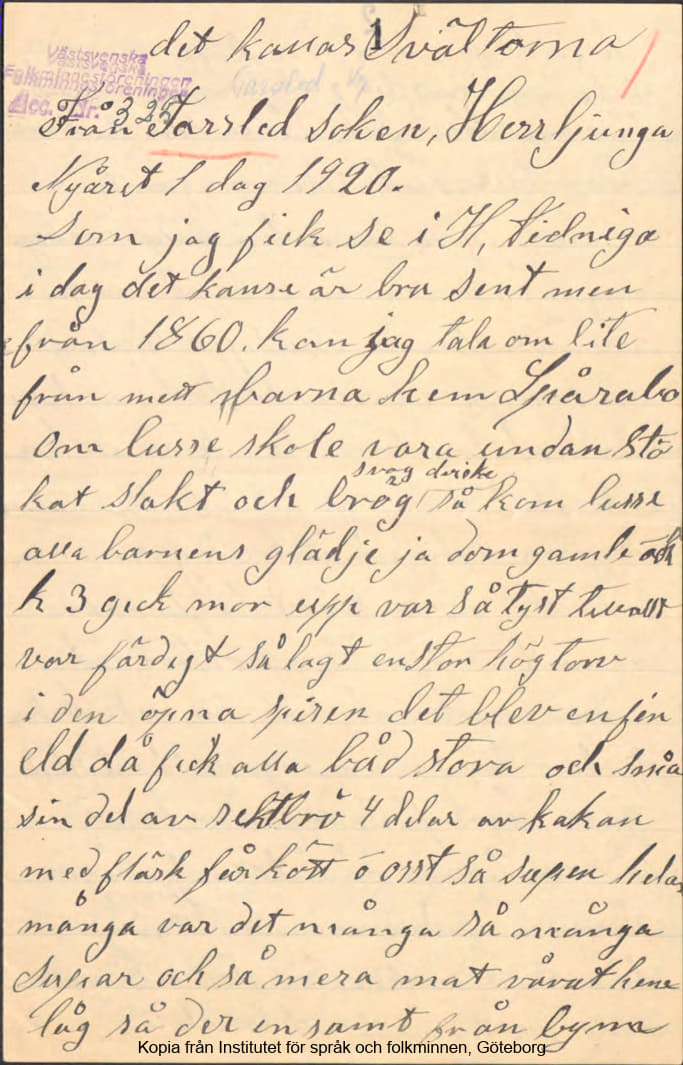 det kallas Svältorna
1
Västsvenska
Folkminnesföreningen
Acc. Nr. 325
Tarsled
Från Tarsled soken, Herrljunga
Nyåret 1 dag 1920.
Som jag fick se i H, tidniga
i dag det kanse är bra sent men
från 1860. kan jag tala om lite
från mett barna hem Spårabo
Om lusse skole vara undan stö
kat slakt och brög så kom lusse
svag dricke
alla barnens glädje ja dom gamle och
k 3 geck mor upp var så tyst til allt
var färdigt så lagt en stor hög torv
i den öpna spisen det blev en fin
eld då fick alla båd stora och små
sin del av siktbrö 4 delar av kakan
med fläsk får kött o osst så supen helar
många var det många så många
supar och så mera mat vårat hem
låg så der ensamt från byna
Kopia från Institutet för språk och folkminnen, Göteborg